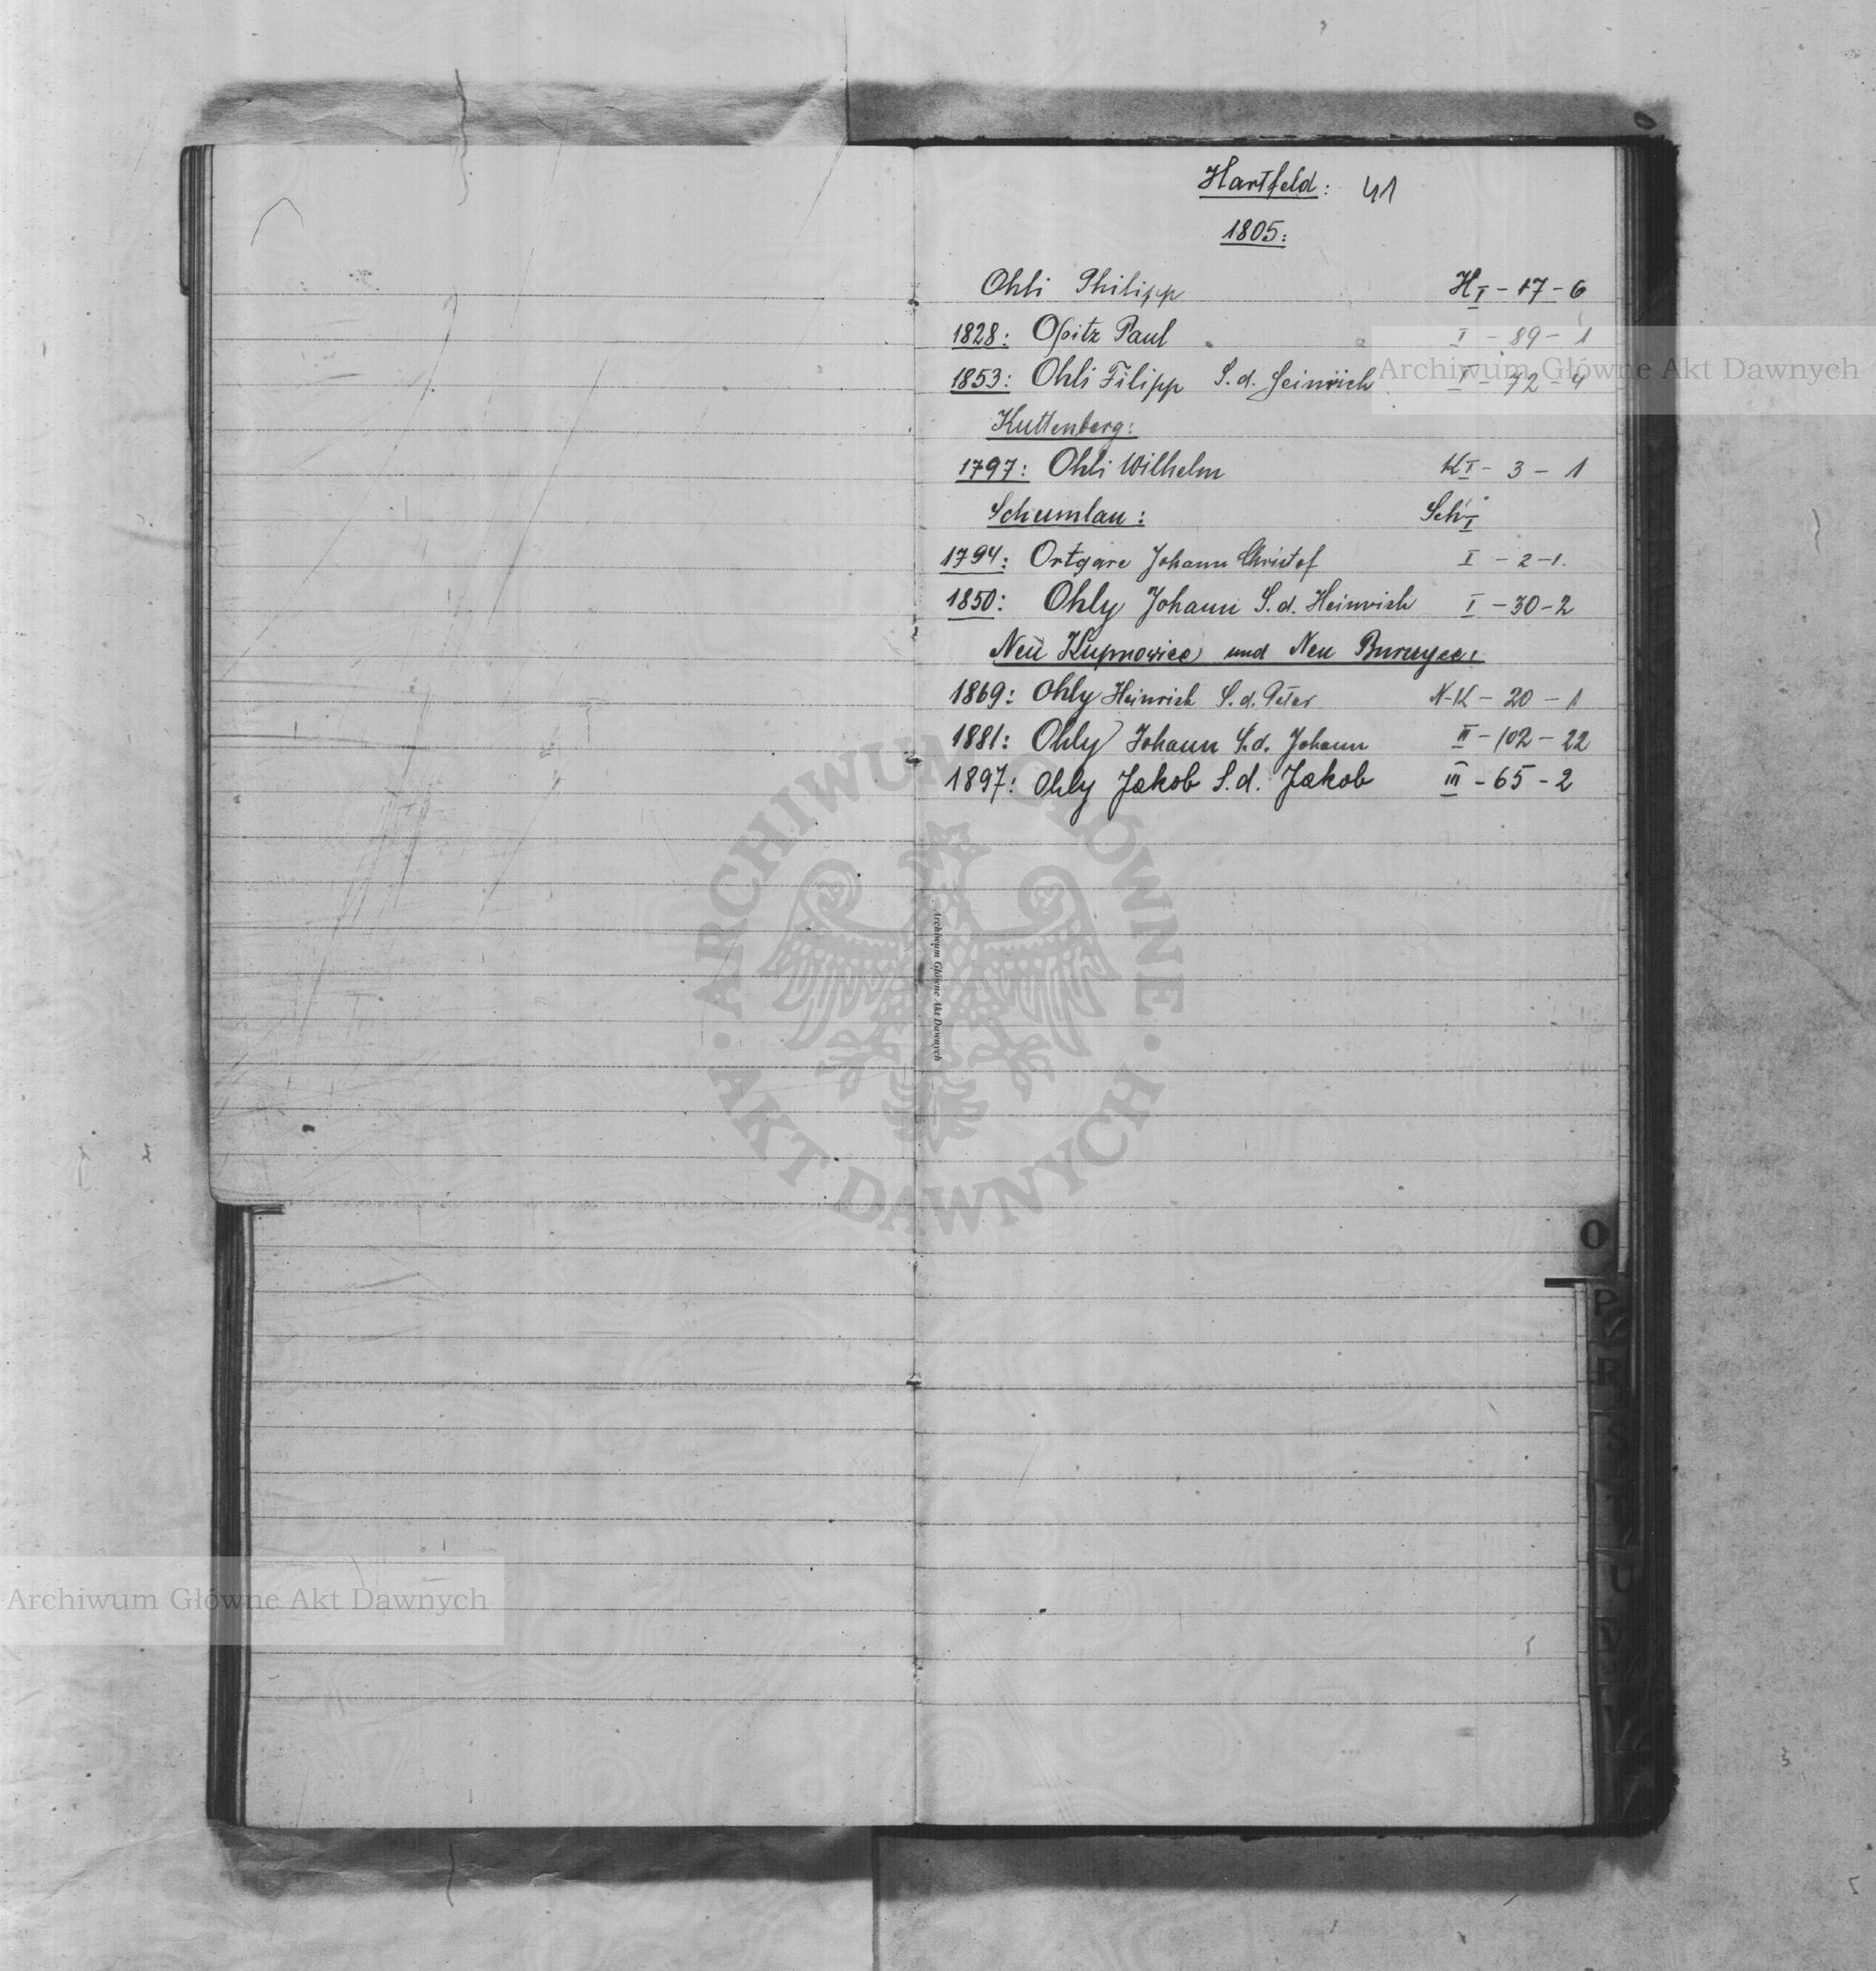 Hartfeld: 41
1805:
Ohli Philipp H I - 17 - 6
1828: Opitz Paul I - 89 - 1
1853: Ohli Filipp S. d. Heinrich I - 72 - 4
Kuttenberg:
1797: Ohli Wilhelm K I - 3 - 1
Schumlau: Sch I
1794: Ortgare Johann Christof I - 2 - 1.
1850: Ohly Johann S. d. Heinrich I - 30 - 2
Neu Kupnowice und Neu
1869: Ohly Heinrich S. d. Peter N-K - 20 - 1
1881: Ohly Johann S. d. Johann II - 102 - 22
1897: Ohly Jakob S. d. Jakob III - 65 - 2
O
P
R
S
T
U
V
Archiwum Główne Akt Dawnych
Archiwum Główne Akt Dawnych
Archiwum Główne Akt Dawnych
ARCHIWUM GŁÓWNE · AKT DAWNYCH ·